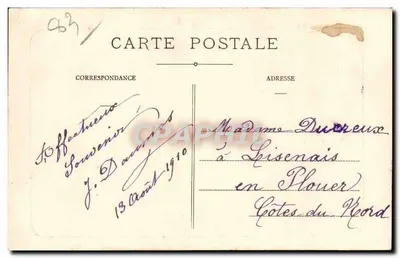 CARTE POSTALE
CORRESPONDANCE
ADRESSE
Affectueux
Souvenir
J.
13 Août 1910
Madame Ducreux
à Lisenais
en Plouer
Côtes du Nord